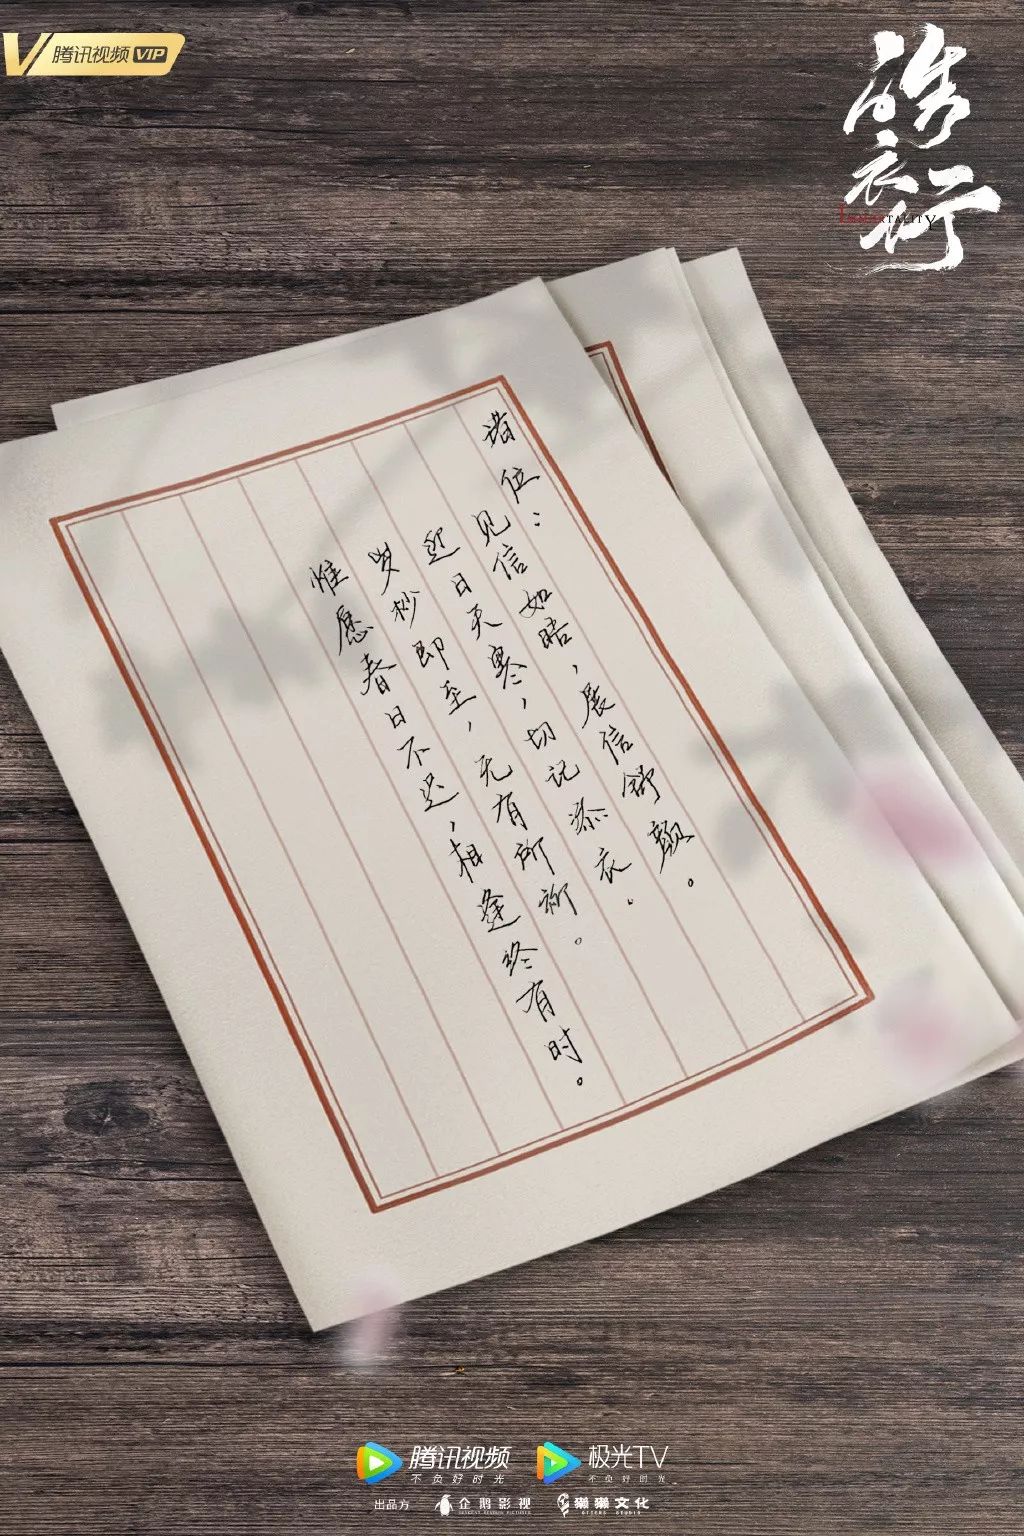 腾讯视频 VIP
皓衣行
IMMORTALITY
诸位：
见信如晤，展信舒颜。
近日天寒，切记添衣。
岁杪即至，无有所祈。
惟愿春日不迟，相逢终有时。
腾讯视频
不负好时光
极光TV
不负好时光
出品方
企鹅影视
TENCENT PENGUIN PICTURES
獭獭文化
OTTERS STUDIO